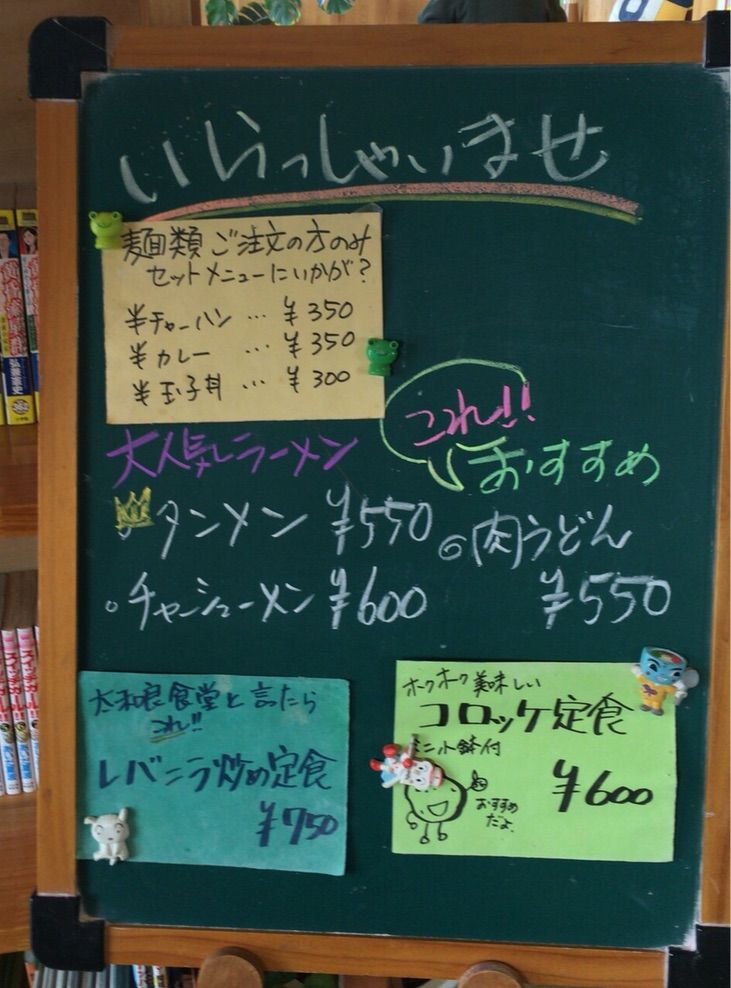 いらっしゃいませ
麺類ご注文の方のみ
セットメニューにいかが?
半チャーハン … ¥350
半カレー … ¥350
半玉子丼 … ¥300
大人気ラーメン
タンメン ¥550
チャーシューメン ¥600
これ!!
おすすめ
肉うどん
¥550
大和良食堂と言ったら
これ!!
レバニラ炒め定食
¥750
ホクホク美味しい
コロッケ定食
ミニ小鉢付
¥600
おすすめ
だよ.
スイッチガール!!
スイッチガール!!
スイッチガール!!